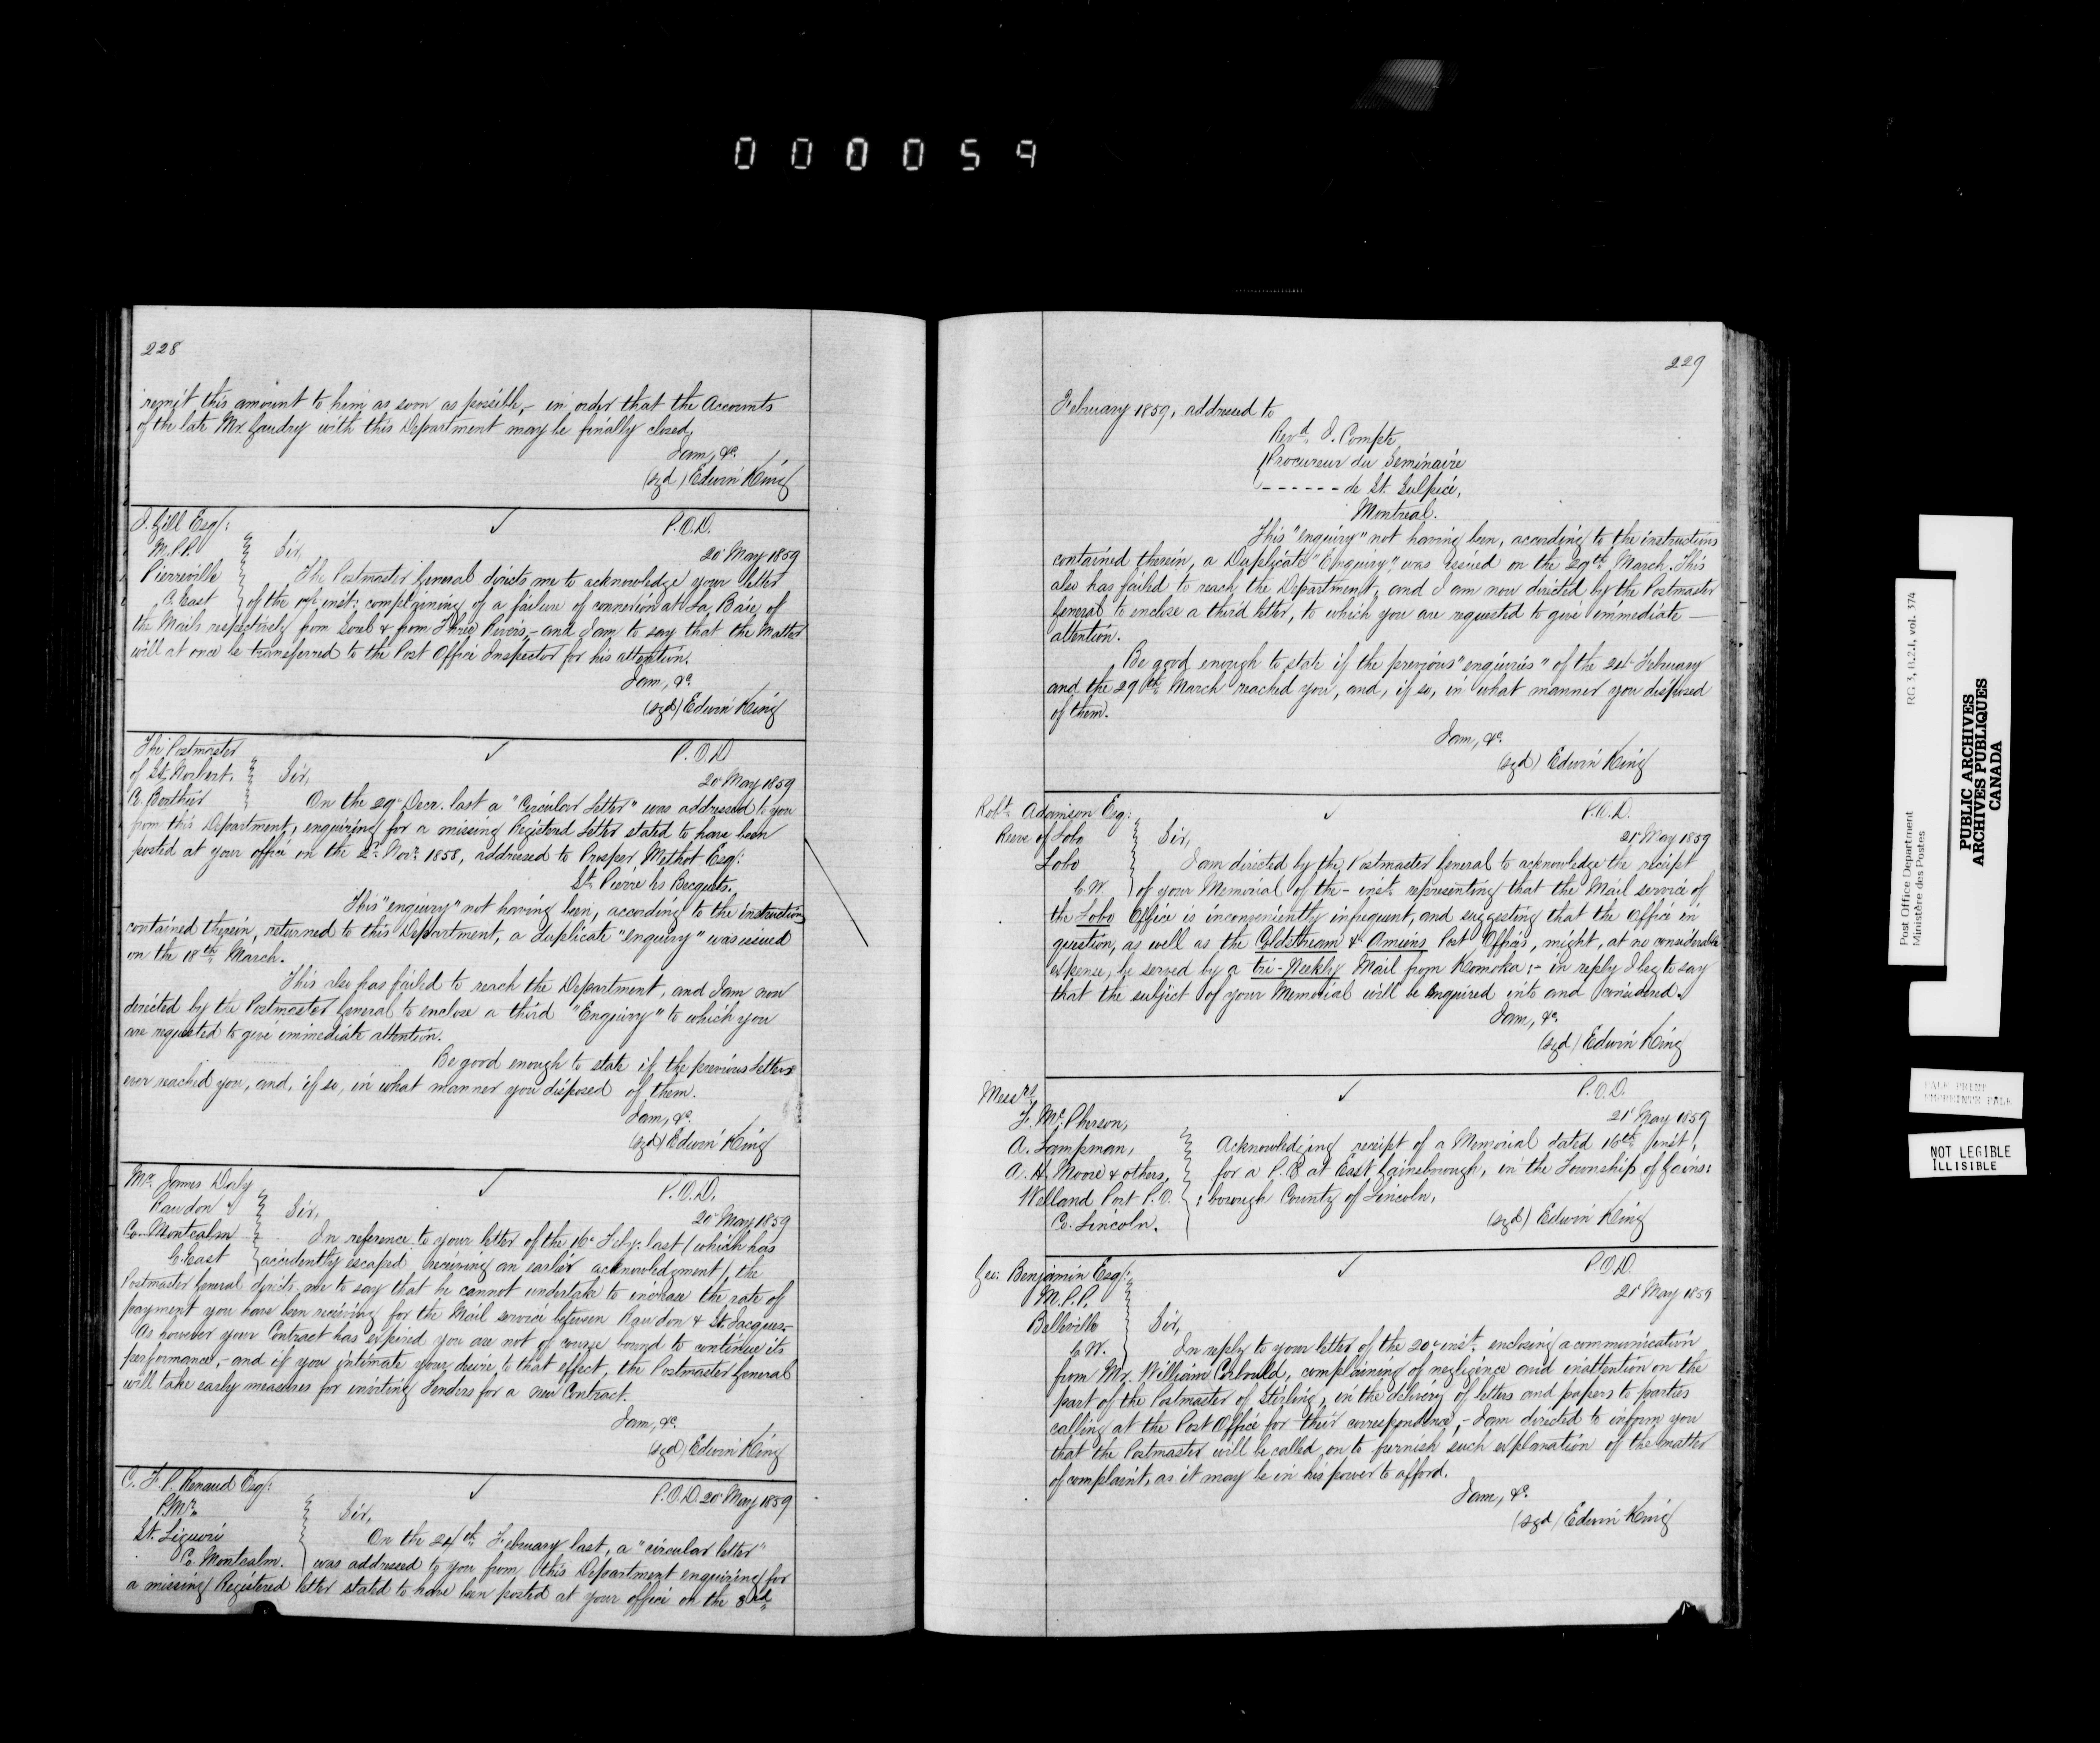 000059
228
remit this amount to him as soon as possible,- in order that the Accounts
of the late Mr. Gaudry with this Department may be finally closed,
I am, &c.
(sgd) Edwin King
I. Gill Esq: ✓ P.O.D.
M.P.P. Sir, 20 May 1859
Pierreville The Postmaster General directs me to acknowledge your letter
C. East of the inst: complaining of a failure of connexion at La Baie, of
the Mails respectively from Sorel & from Three Rivers,- and I am to say that the matter
will at once be transferred to the Post Office Inspector for his attention.
I am, &c.
(sgd) Edwin King
The Postmaster ✓ P.O.D
of St. Norbert. Sir, 20 May 1859
Co. Berthier On the 29 Decr. last a "Circular Letter" was addressed to you
from this Department, enquiring for a missing Registered Letter stated to have been
posted at your office on the 2d. Novr. 1858, addressed to Prosper Methot Esq:
St. Pierre les Becquets.
This "enquiry" not having been, according to the instructions
contained therein, returned to this Department, a duplicate "enquiry" was issued
on the 18th March.
This also has failed to reach the Department, and I am now
directed by the Postmaster General to enclose a third "Enquiry" to which you
are requested to give immediate attention.
Be good enough to state if the previous Letters
ever reached you, and, if so, in what manner you disposed of them.
I am, &c.
(sgd) Edwin King
Mr. James Daly ✓ P.O.D.
Rawdon Sir, 20 May 1859
Co. Montcalm In reference to your letter of the 16 Feby: last (which has
C. East accidently escaped receiving an earlier acknowledgment), the
Postmaster General directs me to say that he cannot undertake to increase the rate of
payment you have been receiving for the Mail service between Rawdon & St. Jacques-
As however your Contract has expired you are not of course bound to continue its
performance,- and if you intimate your desire to that effect, the Postmaster General
will take early measures for inviting Tenders for a new Contract.
I am, &c.
(sgd) Edwin King
C. F. P. Renaud Esq: ✓ P.O.D. 20 May 1859
P.Mr. Sir,
St. Liguori On the 24th February last, a "circular letter"
Co. Montcalm. was addressed to you from this Department enquiring for
a missing Registered letter stated to have been posted at your office on the 3rd
229
February 1859, addressed to
Revd. J. Compte,
Procureur du Seminaire
------ de St. Sulpice,
Montreal.
This "enquiry" not having been, according to the instructions
contained therein, a Duplicate "Enquiry", was issued on the 29th March. This
also has failed to reach the Department, and I am now directed by the Postmaster
General to enclose a third letter, to which you are requested to give immediate —
attention.
Be good enough to state if the previous "enquiries" of the 24 February
and the 29th March reached you, and, if so, in what manner you disposed
of them.
I am, &c.
(sgd) Edwin King
Robt. Adamson Esq: ✓ P.O.D.
Reeve of Lobo Sir, 21 May 1859
Lobo I am directed by the Postmaster General to acknowledge the receipt
C.W. of your Memorial of the - inst. representing that the Mail service of
the Lobo Office is inconveniently infrequent, and suggesting that the Office in
question, as well as the Coldstream & Amiens Post Offices, might, at no considerable
expense, be served by a tri-Weekly Mail from Komoka:- in reply I beg to say
that the subject of your Memorial will be enquired into and considered.
I am, &c.
(sgd) Edwin King
Messrs. ✓ P.O.D.
F. McPherson, 21 May 1859
A. Lampman, Acknowledging receipt of a Memorial dated 16th inst,
A. H. Moore & others, for a P.O. at East Gainsborough, in the Township of Gains:
Welland Port P.O. :borough County of Lincoln.
Co. Lincoln. (sgd) Edwin King
Geo: Benjamin Esq: ✓ P.O.D.
M.P.P. 21 May 1859
Belleville Sir,
C.W. In reply to your letter of the 20 inst. enclosing a communication
from Mr. William Corbould, complaining of negligence and inattention on the
part of the Postmaster of Stirling, in the delivery of letters and papers to parties
calling at the Post Office for their correspondence,- I am directed to inform you
that the Postmaster will be called on to furnish such explanation of the matter
of complaint, as it may be in his power to afford.
I am, &c.
(sgd) Edwin King
Post Office Department RG 3, B.2.1, vol. 374
Ministère des Postes
PUBLIC ARCHIVES
ARCHIVES PUBLIQUES
CANADA
PALE PRINT
EMPREINTE PALE
NOT LEGIBLE
ILLISIBLE